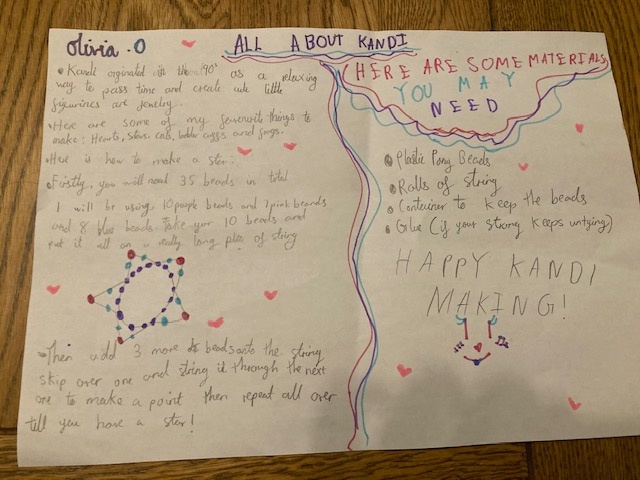 Olivia . O
ALL ABOUT KANDI
• Kandi orginated in the 90's as a relaxing
way to pass time and create cute little
figurines are jewelry.
• Here are some of my favourite things to
make: Hearts, Stars, cats, ladder cuffs and frogs.
• Here is how to make a star:
• Firstly, you will need 35 beads in total
I will be using 10 purple beads and 1 pink beands
and 8 blue beads. Take your 10 beads and
put it all on a really long piec of string
• Then add 3 more beads onto the string
skip over one and string it through the next
one to make a point then repeat all over
till you have a star!
HERE ARE SOME MATERIALS
YOU MAY
NEED
• Plastic Pony Beads
• Rolls of string
• Container to keep the beads
• Glue (if your string keeps untying)
HAPPY KANDI
MAKING!